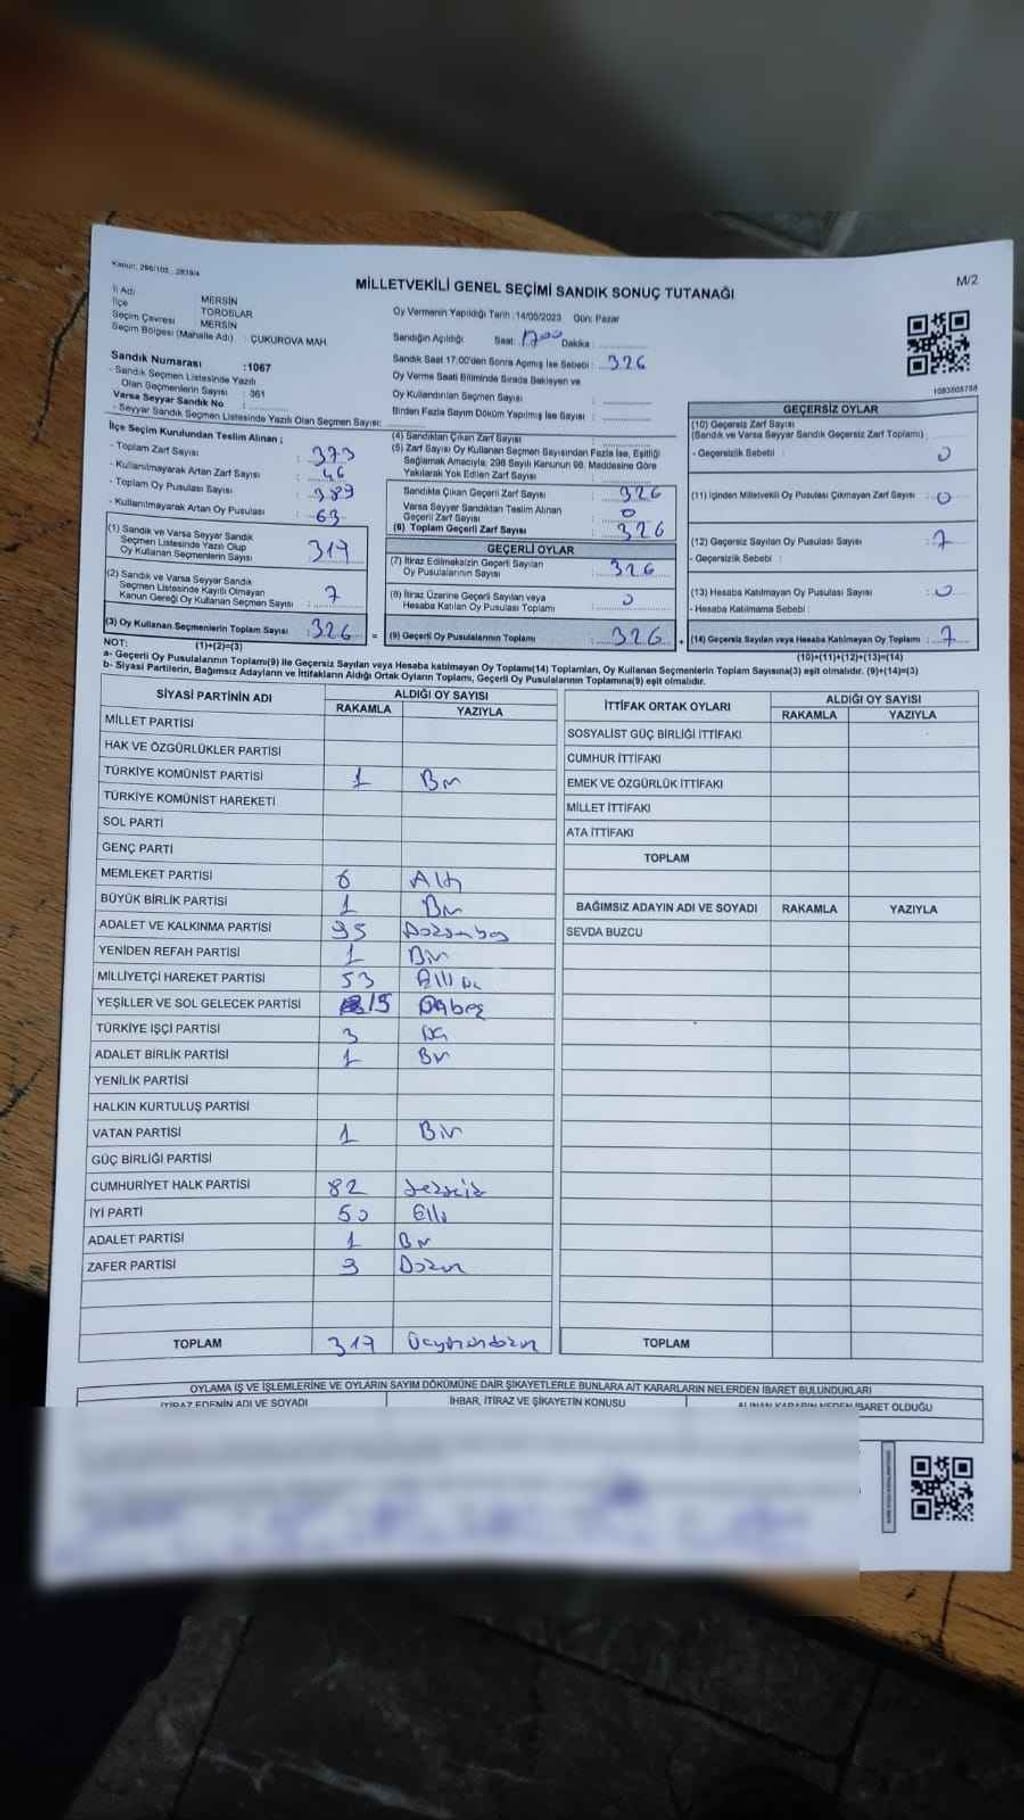 Kanun: 298/105 2839/4
M/2
MİLLETVEKİLİ GENEL SEÇİMİ SANDIK SONUÇ TUTANAĞI
İl Adı MERSİN
İlçe TOROSLAR
Seçim Çevresi MERSİN
Seçim Bölgesi (Mahalle Adı) : ÇUKUROVA MAH.
Oy Vermenin Yapıldığı Tarih :14/05/2023 Gün: Pazar
Sandığın Açıldığı Saat: 1700 Dakika :
Sandık Saat 17:00'den Sonra Açılmış İse Sebebi : 326
Oy Verme Saati Bitiminde Sırada Bekleyen ve
Oy Kullandırılan Seçmen Sayısı :
Birden Fazla Sayım Döküm Yapılmış İse Sayısı :
Sandık Numarası :1067
- Sandık Seçmen Listesinde Yazılı
Olan Seçmenlerin Sayısı : 361
Varsa Seyyar Sandık No :
- Seyyar Sandık Seçmen Listesinde Yazılı Olan Seçmen Sayısı:
İlçe Seçim Kurulundan Teslim Alınan ;
- Toplam Zarf Sayısı : 373
- Kullanılmayarak Artan Zarf Sayısı : 46
- Toplam Oy Pusulası Sayısı : 389
- Kullanılmayarak Artan Oy Pusulası : 63
(1) Sandık ve Varsa Seyyar Sandık
Seçmen Listesinde Yazılı Olup
Oy Kullanan Seçmenlerin Sayısı : 317
(2) Sandık ve Varsa Seyyar Sandık
Seçmen Listesinde Kayıtlı Olmayan
Kanun Gereği Oy Kullanan Seçmen Sayısı : 7
(3) Oy Kullanan Seçmenlerin Toplam Sayısı : 326
(1)+(2)=(3)
(4) Sandıktan Çıkan Zarf Sayısı :
(5) Zarf Sayısı Oy Kullanan Seçmen Sayısından Fazla İse, Eşitliği
Sağlamak Amacıyla; 298 Sayılı Kanunun 98. Maddesine Göre
Yakılarak Yok Edilen Zarf Sayısı :
Sandıkta Çıkan Geçerli Zarf Sayısı : 326
Varsa Seyyar Sandıktan Teslim Alınan
Geçerli Zarf Sayısı : 0
(6) Toplam Geçerli Zarf Sayısı : 326
GEÇERLİ OYLAR
(7) İtiraz Edilmeksizin Geçerli Sayılan
Oy Pusulalarının Sayısı : 326
(8) İtiraz Üzerine Geçerli Sayılan veya
Hesaba Katılan Oy Pusulası Toplamı : 0
= (9) Geçerli Oy Pusulalarının Toplamı : 326 +
1083808788
GEÇERSİZ OYLAR
(10) Geçersiz Zarf Sayısı
(Sandık ve Varsa Seyyar Sandık Geçersiz Zarf Toplamı) :
- Geçersizlik Sebebi : 0
(11) İçinden Milletvekili Oy Pusulası Çıkmayan Zarf Sayısı : 0
(12) Geçersiz Sayılan Oy Pusulası Sayısı : 7
- Geçersizlik Sebebi :
(13) Hesaba Katılmayan Oy Pusulası Sayısı : 0
- Hesaba Katılmama Sebebi :
(14) Geçersiz Sayılan veya Hesaba Katılmayan Oy Toplamı : 7
(10)+(11)+(12)+(13)=(14)
NOT:
a- Geçerli Oy Pusulalarının Toplamı(9) ile Geçersiz Sayılan veya Hesaba katılmayan Oy Toplamı(14) Toplamları, Oy Kullanan Seçmenlerin Toplam Sayısına(3) eşit olmalıdır. (9)+(14)=(3)
b- Siyasi Partilerin, Bağımsız Adayların ve İttifakların Aldığı Ortak Oyların Toplamı, Geçerli Oy Pusulalarının Toplamına(9) eşit olmalıdır.
SİYASİ PARTİNİN ADI ALDIĞI OY SAYISI
RAKAMLA YAZIYLA
MİLLET PARTİSİ
HAK VE ÖZGÜRLÜKLER PARTİSİ
TÜRKİYE KOMÜNİST PARTİSİ 1 Bir
TÜRKİYE KOMÜNİST HAREKETİ
SOL PARTİ
GENÇ PARTİ
MEMLEKET PARTİSİ 6 Altı
BÜYÜK BİRLİK PARTİSİ 1 Bir
ADALET VE KALKINMA PARTİSİ 95 Doksanbeş
YENİDEN REFAH PARTİSİ 1 Bir
MİLLİYETÇİ HAREKET PARTİSİ 53 Elli üç
YEŞİLLER VE SOL GELECEK PARTİSİ 15 Onbeş
TÜRKİYE İŞÇİ PARTİSİ 3 Üç
ADALET BİRLİK PARTİSİ 1 Bir
YENİLİK PARTİSİ
HALKIN KURTULUŞ PARTİSİ
VATAN PARTİSİ 1 Bir
GÜÇ BİRLİĞİ PARTİSİ
CUMHURİYET HALK PARTİSİ 82
İYİ PARTİ 50 Elli
ADALET PARTİSİ 1 Bir
ZAFER PARTİSİ
TOPLAM 317
İTTİFAK ORTAK OYLARI ALDIĞI OY SAYISI
RAKAMLA YAZIYLA
SOSYALİST GÜÇ BİRLİĞİ İTTİFAKI
CUMHUR İTTİFAKI
EMEK VE ÖZGÜRLÜK İTTİFAKI
MİLLET İTTİFAKI
ATA İTTİFAKI
TOPLAM
BAĞIMSIZ ADAYIN ADI VE SOYADI RAKAMLA YAZIYLA
SEVDA BUZCU
TOPLAM
OYLAMA İŞ VE İŞLEMLERİNE VE OYLARIN SAYIM DÖKÜMÜNE DAİR ŞİKAYETLERLE BUNLARA AİT KARARLARIN NELERDEN İBARET BULUNDUKLARI
İTİRAZ EDENİN ADI VE SOYADI İHBAR, İTİRAZ VE ŞİKAYETİN KONUSU ALINAN KARARIN NEDEN İBARET OLDUĞU